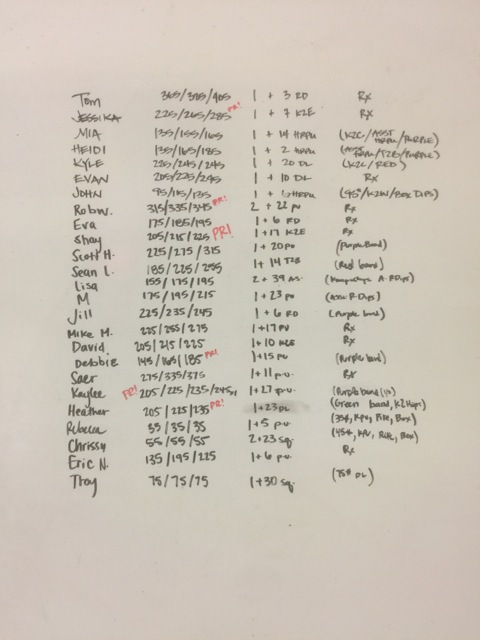 Tom 365/385/405 1 + 3 RD Rx
JESSIKA 225/265/285 PR! 1 + 7 K2E Rx
MIA 135/155/165 1 + 14 HRPU (K2C/ASST HRPU/PURPLE)
HEIDI 135/165/185 1 + 2 HRPU (ASST HRPU/T2B/PURPLE)
KYLE 225/245/245 1 + 20 DL (K2C/RED)
EVAN 205/225/245 1 + 10 DL Rx
JOHN 95/115/135 1 + HRPU (95#/K2W/Box Dips)
Rob W. 315/335/345 PR! 2 + 22 PU Rx
Eva 175/185/195 1 + 6 RD Rx
Shay 205/215/225 PR! 1 + 17 K2E Rx
Scott H. 225/275/315 1 + 20 PU (Purple Band)
Sean L. 185/225/255 1 + 14 T2B (Red band)
Lisa 155/175/195 2 + 39 A.S. A. R Dips)
M 175/195/215 1 + 23 PU (Assist R. Dips)
Jill 225/235/245 1 + 6 RD (Purple band)
Mike M. 225/255/275 1 + 17 PU Rx
David 205/215/225 1 + 10 K2E Rx
Debbie 145/165/185 PR! 1 + 15 PU (Purple band)
Saer 275/335/375 1 + 11 P.U. Rx
Kaylee PR! 205/225/235/245 1 + 27 P.U. (Purple band
Heather 205/225/235 PR! 1 + 23 DL (Green band, K2Hips)
Rebecca 35/35/35 1 + 5 P.U. (35#, KPU, Box)
Chrissy 55/55/55 2 + 23 sq. (45#, KPU, Box)
Eric N. 135/195/225 1 + 6 P.U. Rx
Troy 75/75/75 1 + 30 sq. (75# DL)